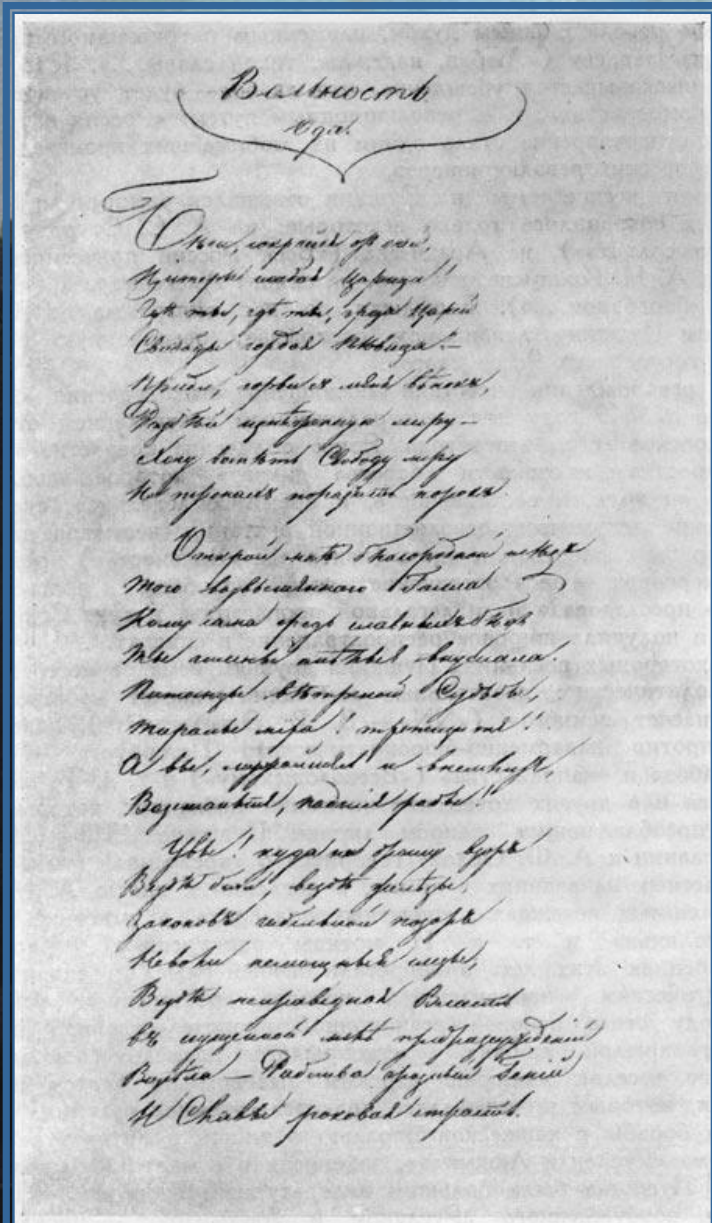 Вольность.
Ода.
Бѣги, сокройся отъ очей,
Цитеры слабая Царица!
Гдѣ ты, гдѣ ты, гроза Царей
Свободы гордая Пѣвица! —
Приди, сорви съ меня вѣнокъ,
Разбей изнѣженную лиру —
Хочу воспѣть Свободу міру
На тронахъ поразить порокъ.
Открой мнѣ благородной слѣдъ
Того возвышеннаго Галла
Кому сама средь славныхъ бѣдъ
Ты гимны смѣлыя внушала
Питомцы вѣтряной Судьбы,
Тираны міра! трепещите!
А вы, мужайтесь и внемлите,
Возстаньте, падшіе рабы!
Увы! куда ни брошу взоръ
Вездѣ бичи, вездѣ желѣзы
Законовъ гибельной позоръ
Неволи немощныя слезы,
Вездѣ неправедная Власть
въ сгущенной мглѣ предразсужденій
Возсѣла — Рабства грозный Геній
И Славы роковая страсть.